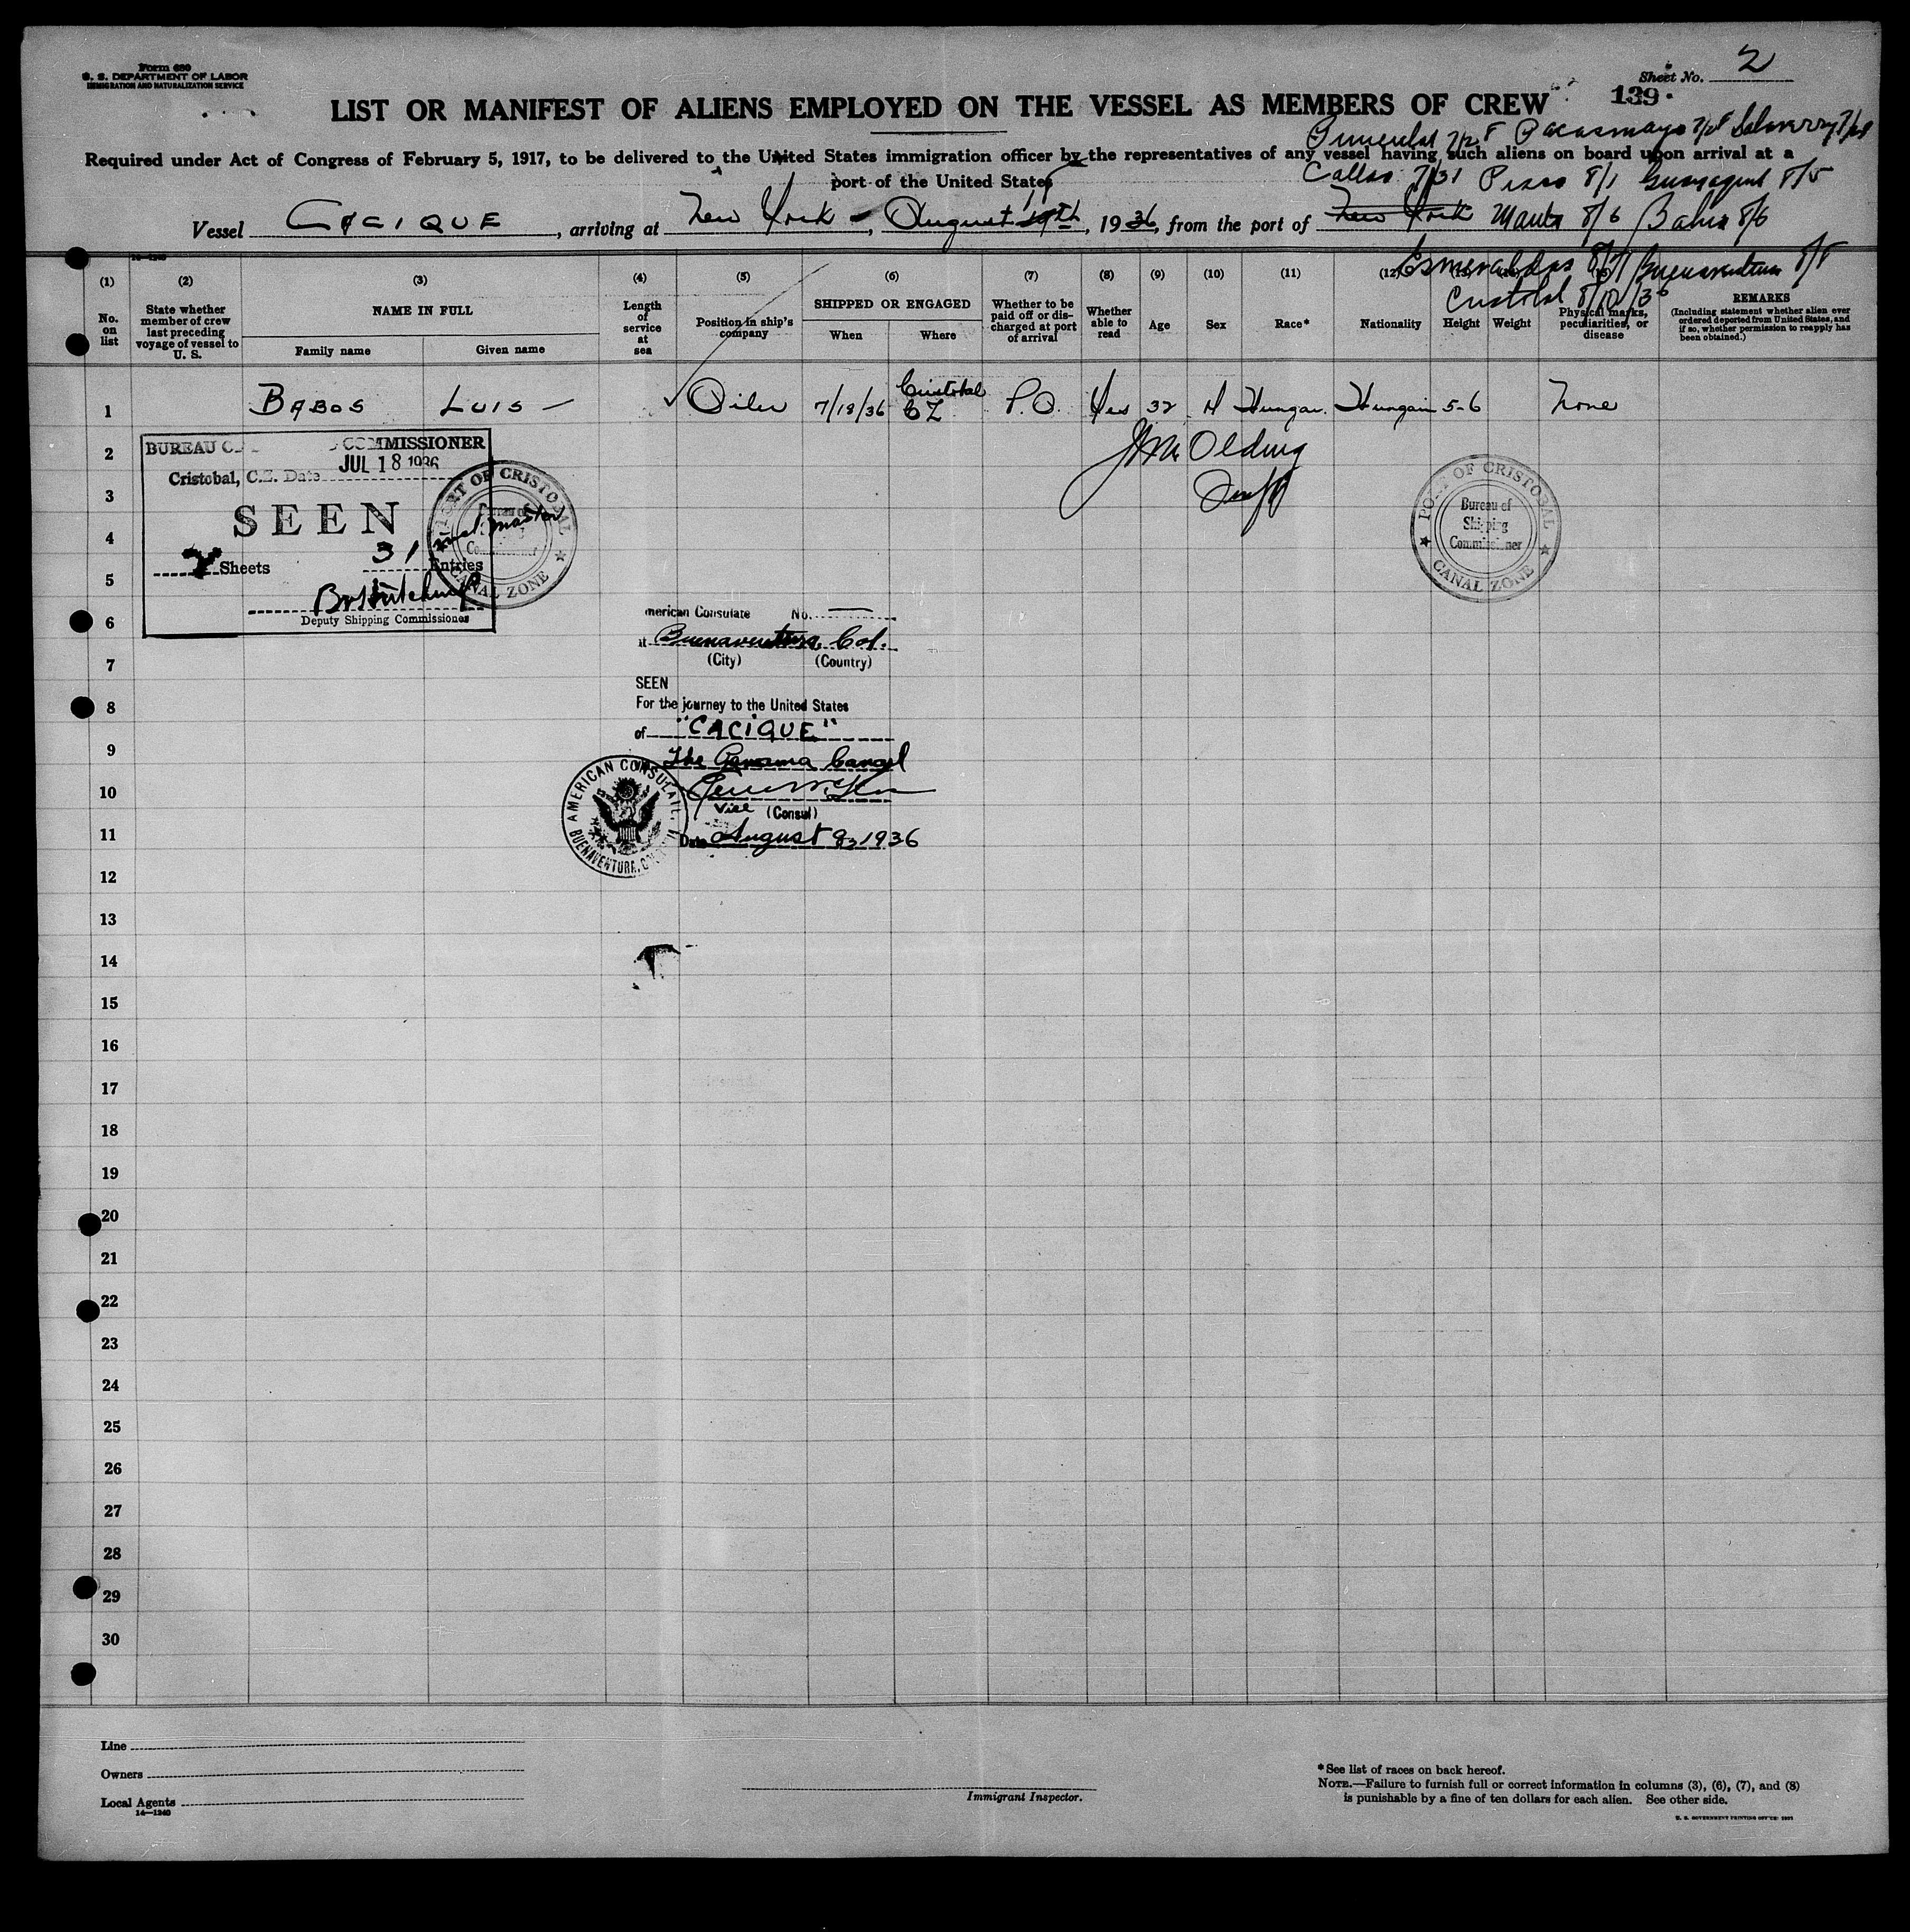 Form 680
U. S. DEPARTMENT OF LABOR
IMMIGRATION AND NATURALIZATION SERVICE
Sheet No. 2
139
LIST OR MANIFEST OF ALIENS EMPLOYED ON THE VESSEL AS MEMBERS OF CREW
Pacasmayo Salaverry
Required under Act of Congress of February 5, 1917, to be delivered to the United States immigration officer by the representatives of any vessel having such aliens on board upon arrival at a
port of the United States
Callao 7/31 Pisco 8/1 8/5
Vessel CACIQUE, arriving at New York, August, 1936, from the port of New York Manta 8/6 Bahia 8/6
Esmeraldas Buenaventura 8/8
Cristobal
14-1240
(1) (2) (3) (4) (5) (6) (7) (8) (9) (10) (11) (12)
No. on list
State whether member of crew last preceding voyage of vessel to U. S.
NAME IN FULL
Family name Given name
Length of service at sea
Position in ship's company
SHIPPED OR ENGAGED
When Where
Whether to be paid off or discharged at port of arrival
Whether able to read
Age
Sex
Race*
Nationality
Height
Weight
Physical marks, peculiarities, or disease
REMARKS
(Including statement whether alien ever ordered deported from United States, and if so, whether permission to reapply has been obtained.)
1 BABOS LUIS — Oiler 7/18/36 Cristobal CZ P.O. Yes 32 M Hungar. 5-6 None
Olding
BUREAU COMMISSIONER
Cristobal, C.Z. Date JUL 18 1936
SEEN
Sheets 31 Entries
Deputy Shipping Commissioner
PORT OF CRISTOBAL
CANAL ZONE
PORT OF CRISTOBAL
Bureau of
Shipping
Commissioner
CANAL ZONE
2
3
4
5
6
7
8
9
10
11
12
13
14
15
16
17
18
19
20
21
22
23
24
25
26
27
28
29
30
merican Consulate No.
at Buenaventura, Col.
(City) (Country)
SEEN
For the journey to the United States
of "CACIQUE"
The Panama Canal
Vice (Consul)
Date August 8, 1936
AMERICAN CONSULATE
BUENAVENTURA, CO
Line
Owners
Local Agents
14—1240
Immigrant Inspector.
*See list of races on back hereof.
NOTE.—Failure to furnish full or correct information in columns (3), (6), (7), and (8)
is punishable by a fine of ten dollars for each alien. See other side.